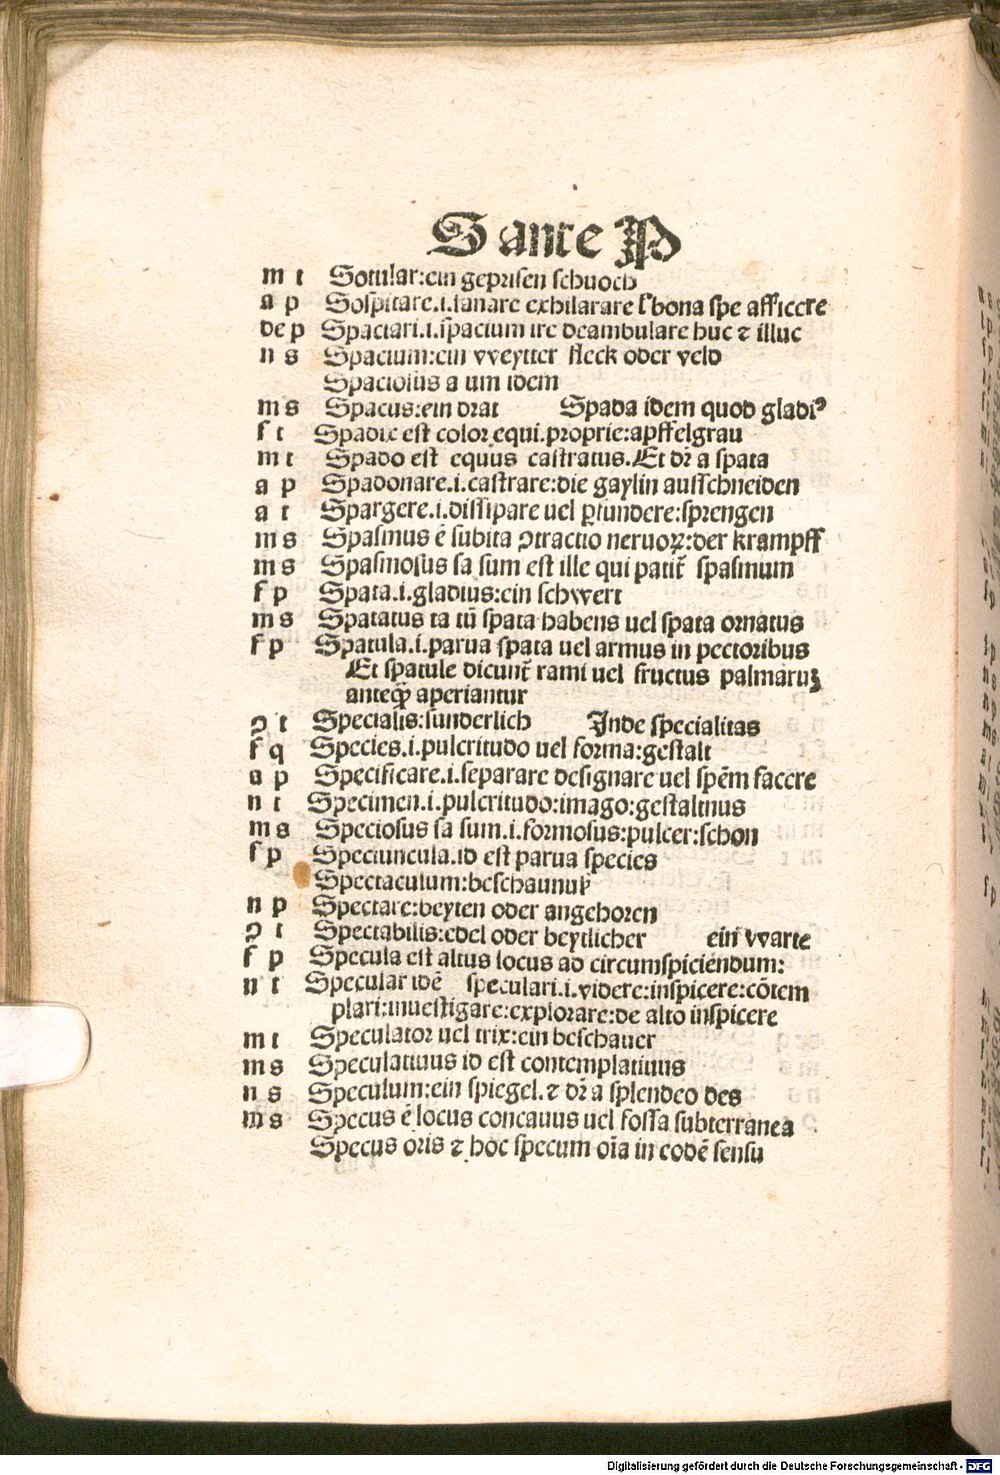 S ante P
m t Sotular:ein geprisen schuoch
a p Sospitare.i.sanare exhilarare ł bona spe afficere
de p Spaciari.i.spacium ire deambulare huc ⁊ illuc
n s Spacium:ein vveytter fleck oder veld
Spaciosus a um idem
m s Spacus:ein drat Spada idem quod gladiꝰ
f t Spadix est color equi.proprie:apffelgrau
m t Spado est equus castratus.Et dr̄ a spata
a p Spadonare.i.castrare:die gaylin ausschneiden
a t Spargere.i.dissipare uel ꝑfundere:sprengen
m s Spasmus ē subita ↄtractio neruoꝝ:der krampff
m s Spasmosus sa sum est ille qui patit᷑ spasmum
f p Spata.i.gladius:ein schvvert
m s Spatatus ta tū spata habens uel spata ornatus
f p Spatula.i.parua spata uel armus in pectoribus
Et spatule dicunt᷑ rami uel fructus palmaruꝫ
anteqꝫ aperiantur
ↄ t Specialis:sunderlich Inde specialitas
f q Species.i.pulcritudo uel forma:gestalt
a p Specificare.i.separare designare uel spēm facere
n t Specimen.i.pulcritudo:imago:gestaltnus
m s Speciosus sa sum.i.formosus:pulcer:schon
f p Speciuncula.id est parua species
Spectaculum:beschaunuß
n p Spectare:beyten oder angehoren
ↄ t Spectabilis:edel oder beytlicher ein vvarte
f p Specula est altus locus ad circumspiciendum:
n t Specular idē speculari.i.videre:inspicere:cōtem
plari:inuestigare:explorare:de alto inspicere
m t Speculator uel trix:ein beschauer
m s Speculatiuus id est contemplatiuus
n s Speculum:ein spiegel.⁊ dr̄ a splendeo des
m s Specus ē locus concauus uel fossa subterranea
Specus oris ⁊ hoc specum oīa in eodē sensu
Digitalisierung gefördert durch die Deutsche Forschungsgemeinschaft - DFG